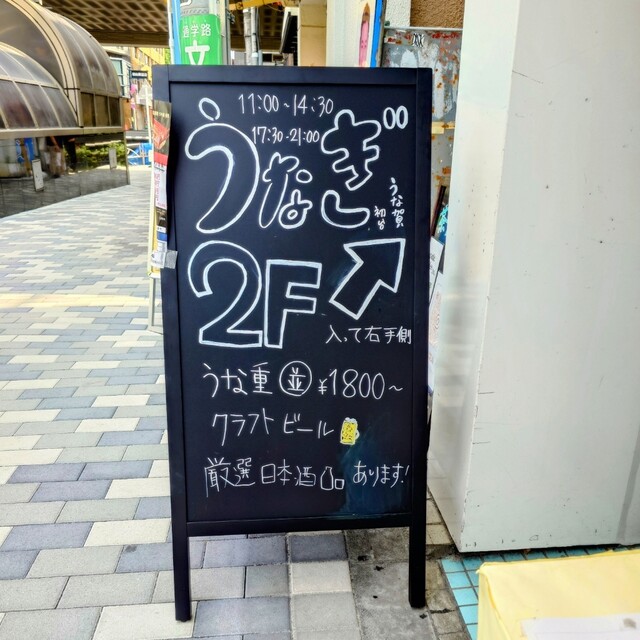 通学路
11:00~14:30
17:30-21:00
うなぎ
うな賀
初台
2F
入って右手側
うな重 並 ¥1800~
クラフトビール
厳選日本酒あります!